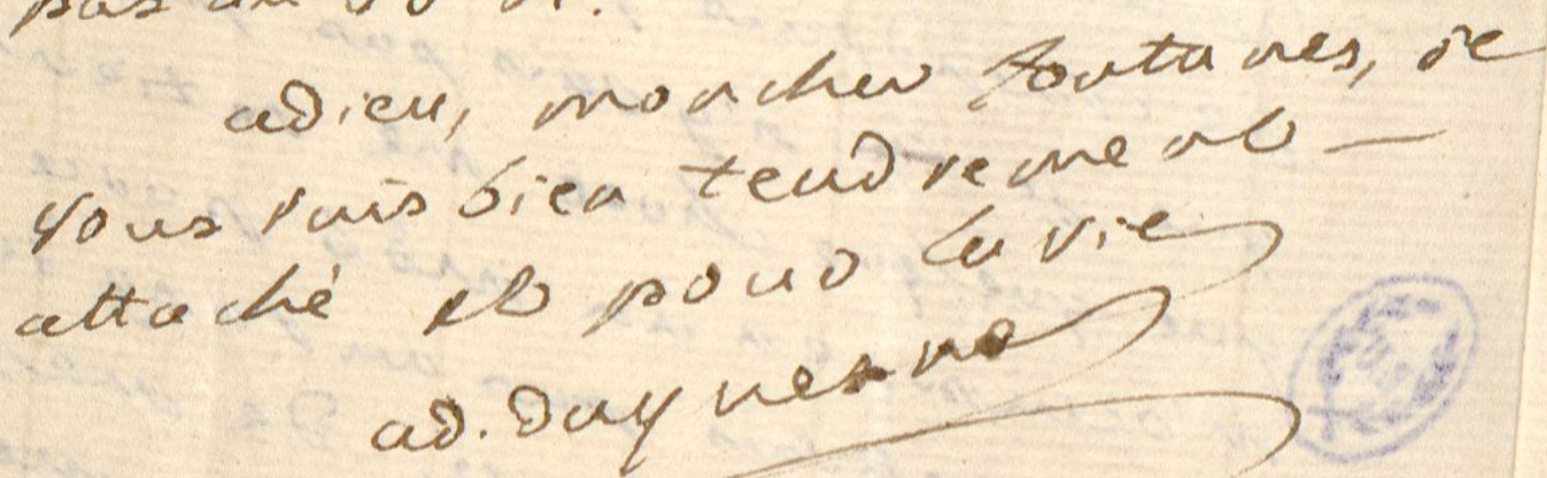 pas au
adieu, mon cher fontanes, je
vous suis bien tendrement —
attaché et pour la vie
ad. Duquesnoy